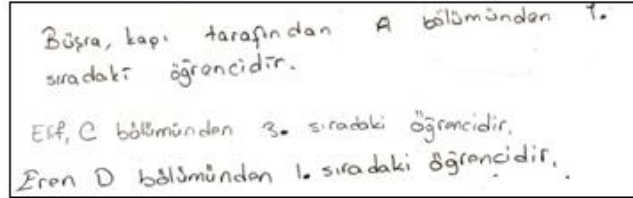 Büşra, kapı tarafından A bölümünden 1.
sıradaki öğrencidir.
Elif, C bölümünden 3. sıradaki öğrencidir.
Eren D bölümünden 1. sıradaki öğrencidir.